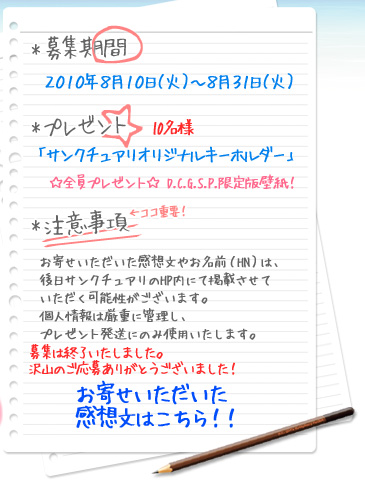 *募集期間
2010年8月10日(火)～8月31日(火)
*プレゼント 10名様
「サンクチュアリオリジナルキーホルダー」
☆全員プレゼント☆ D.C.G.S.P.限定版壁紙!
*注意事項 ←ココ重要!
お寄せいただいた感想文やお名前(HN)は、
後日サンクチュアリのHP内にて掲載させて
いただく可能性がございます。
個人情報は厳重に管理し、
プレゼント発送にのみ使用いたします。
募集は終了いたしました。
沢山のご応募ありがとうございました!
お寄せいただいた
感想文はこちら!!